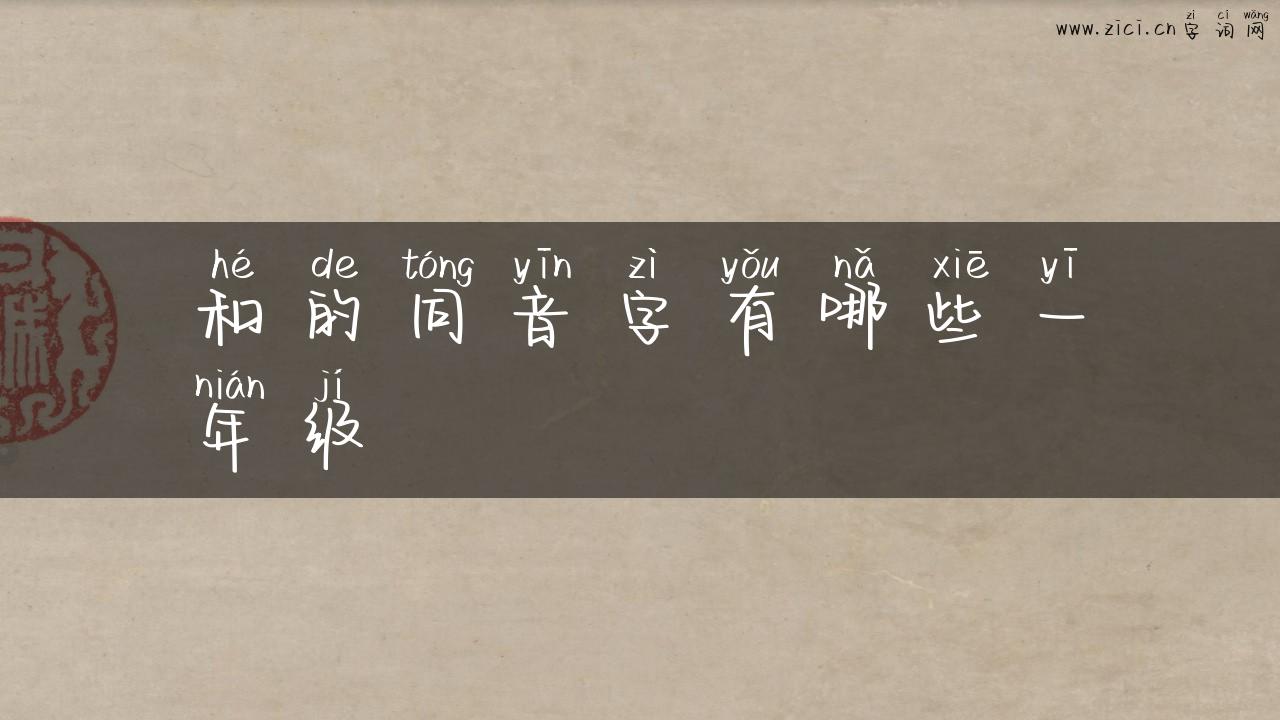 zì cí wǎng
www.zici.cn 字词网
hé de tóng yīn zì yǒu nǎ xiē yī
和的同音字有哪些一
nián jí
年级